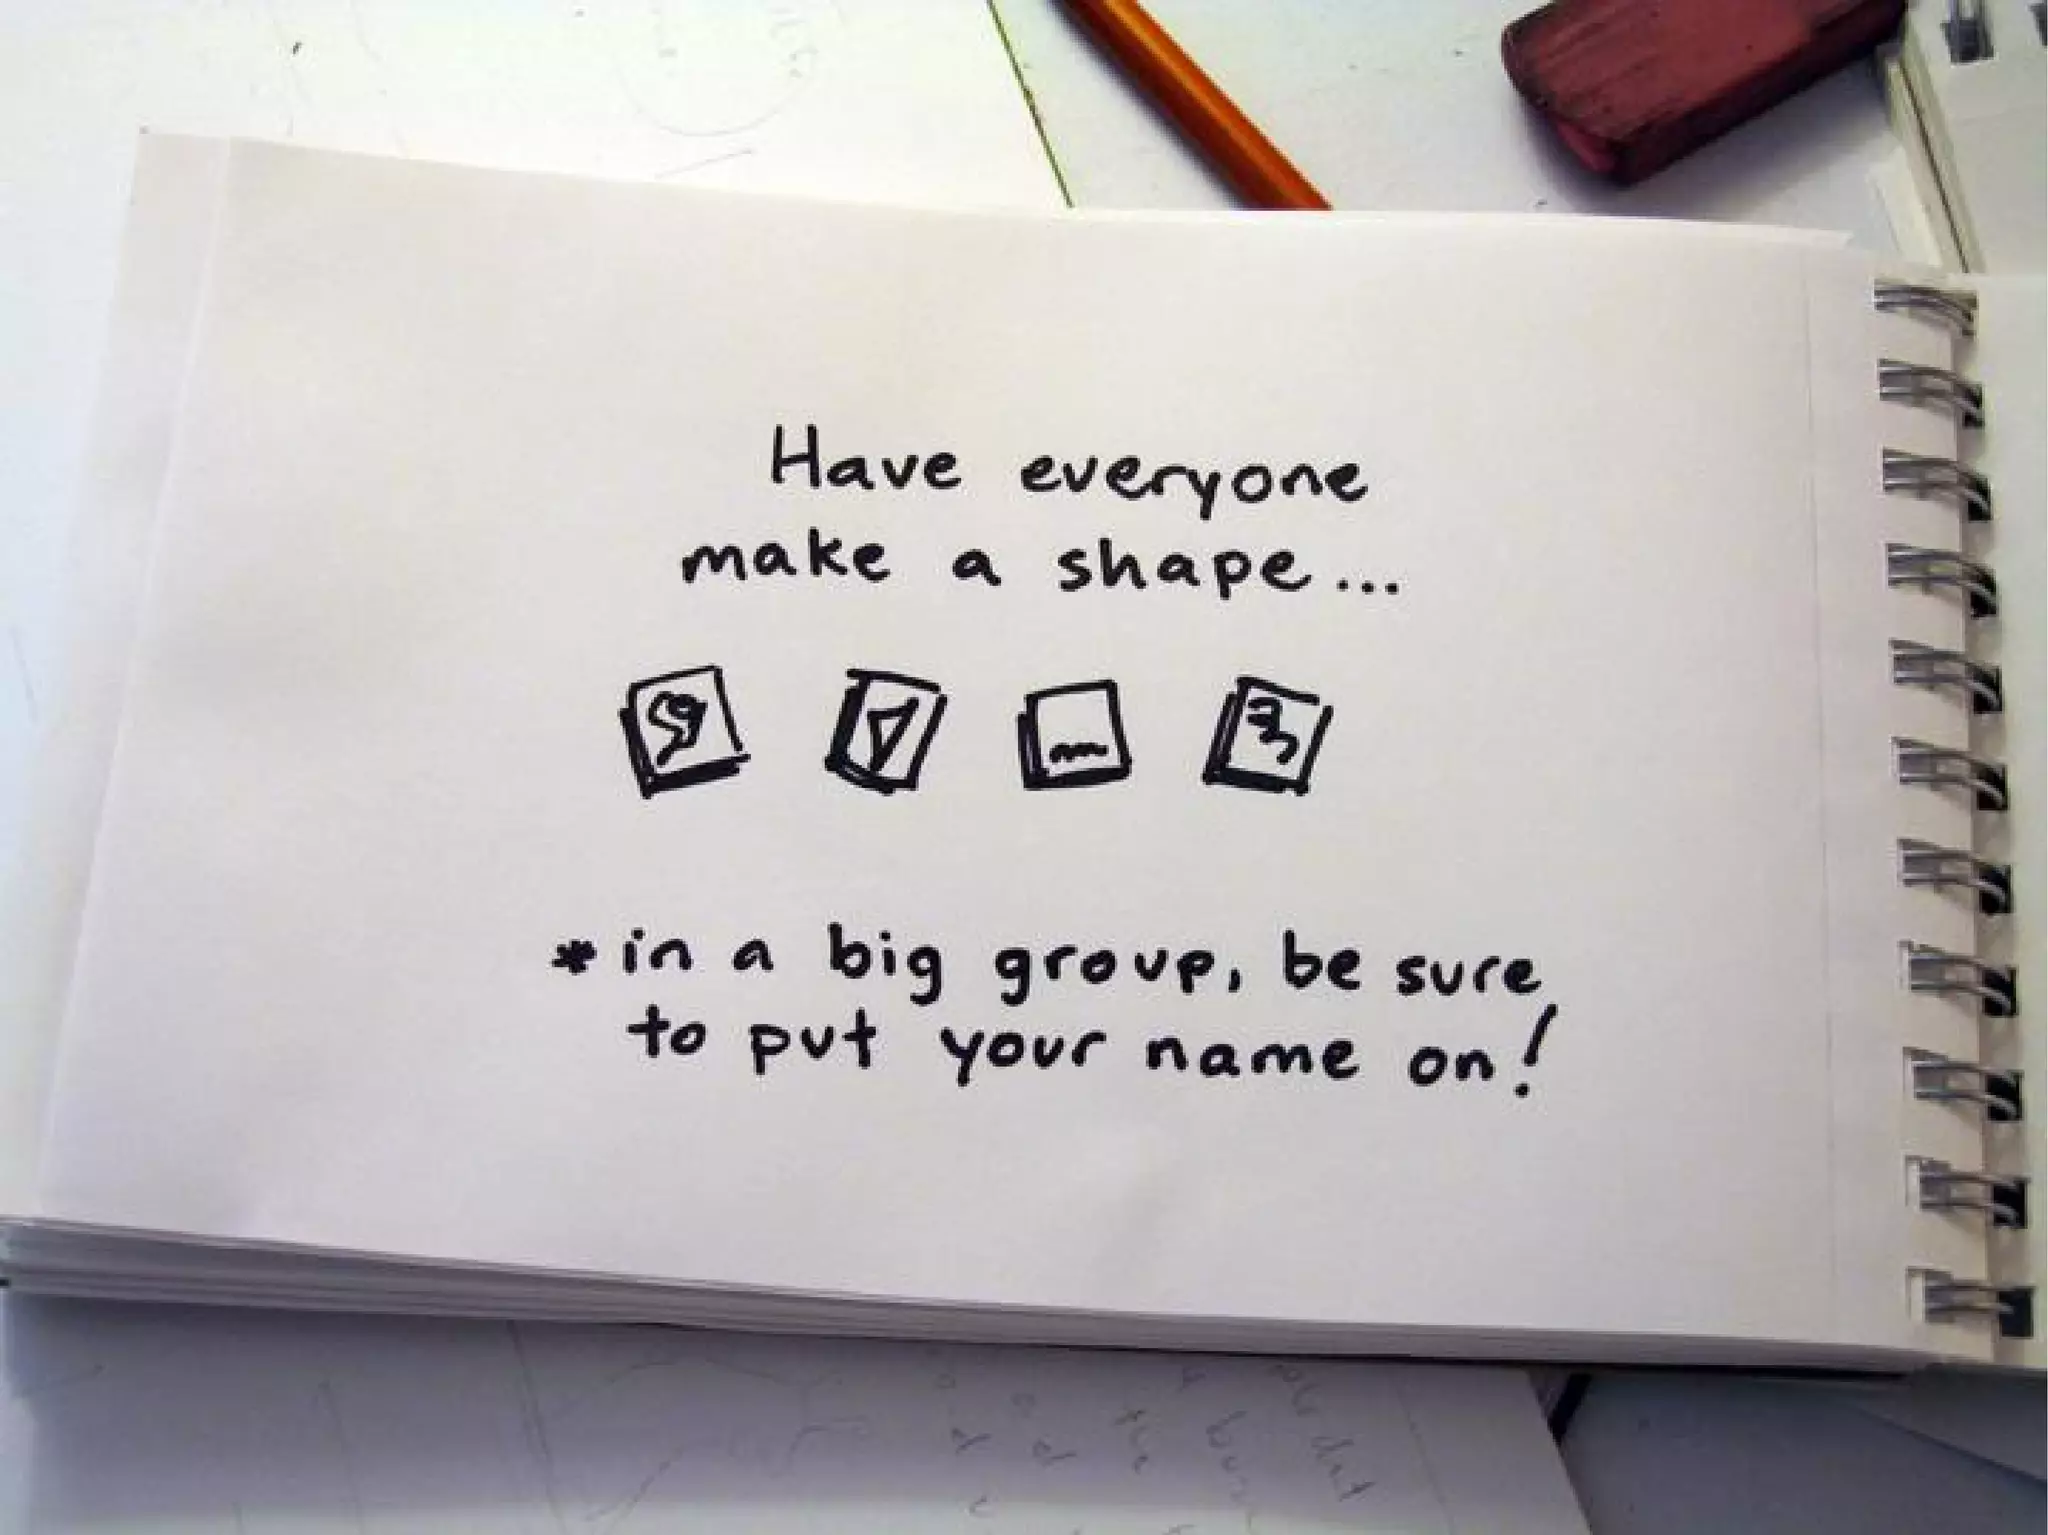 Have everyone
make a shape...
*in a big group, be sure
to put your name on!